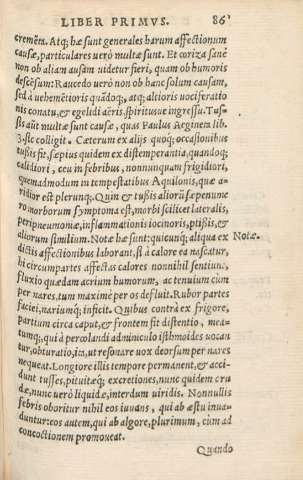 LIBER PRIMVS. 86
cremẽta. Atq; hæ sunt generales harum affectionum
causæ, particulares verò multæ sunt. Et coriza sanè
non ob aliam ausam uidetur fieri, quam ob humoris
descẽsum: Raucedo verò non ob hanc solum causam,
sed à vehemẽtioris quãdoq;, atq; altioris uociferatio
nis conatu, & egelidi aëris, spiritusue ingressu. Tus-
sis aũt multæ sunt causæ, quas Paulus Aegineta lib.
3. sic colligit. Cæterum ex alijs quoq; occasionibus
tußis fit, sæpius quidem ex distemperantia, quandoq;
calidiori, ceu in febribus, nonnunquam frigidiori,
quemadmodum in tempestatibus Aquilonis, quæ a-
ridior est plerunq;. Quin & tußis aliorũ sæpenume
ro morborum symptoma est, morbi scilicet lateralis,
peripneumoniæ, inflammationis iocinoris, ptisis, &
aliorum similium. Notæ hæ sunt: quicunq; aliqua ex Notæ.
dictis affectionibus laborant, si à calore ea nascatur,
hi circumpartes affectas calores nonnihil sentiunt,
fluxio quædam acrium humorum, ac tenuium cùm
per nares, tum maximè per os defluit. Rubor partes
faciei, nariumq; inficit. Quibus contrà ex frigore,
partium circa caput, & frontem fit distentio, mea-
tumq;, qui à percolandi adminculo isthmoides uocan
tur, obturatio, ita, ut resonare uox deorsum per nares
nequeat. Longiore illis tempore permanent, & acci-
dunt tusses, pituitæq; excretiones, nunc quidem cru
dæ, nunc uerò liquidæ, interdum uiridis. Nonnullis
febris oboritur nihil eos iuuans, qui ab æstu inua-
duntur: eos autem, qui ab algore, plurimum, cùm ad
concoctionem promoueat.
Quando